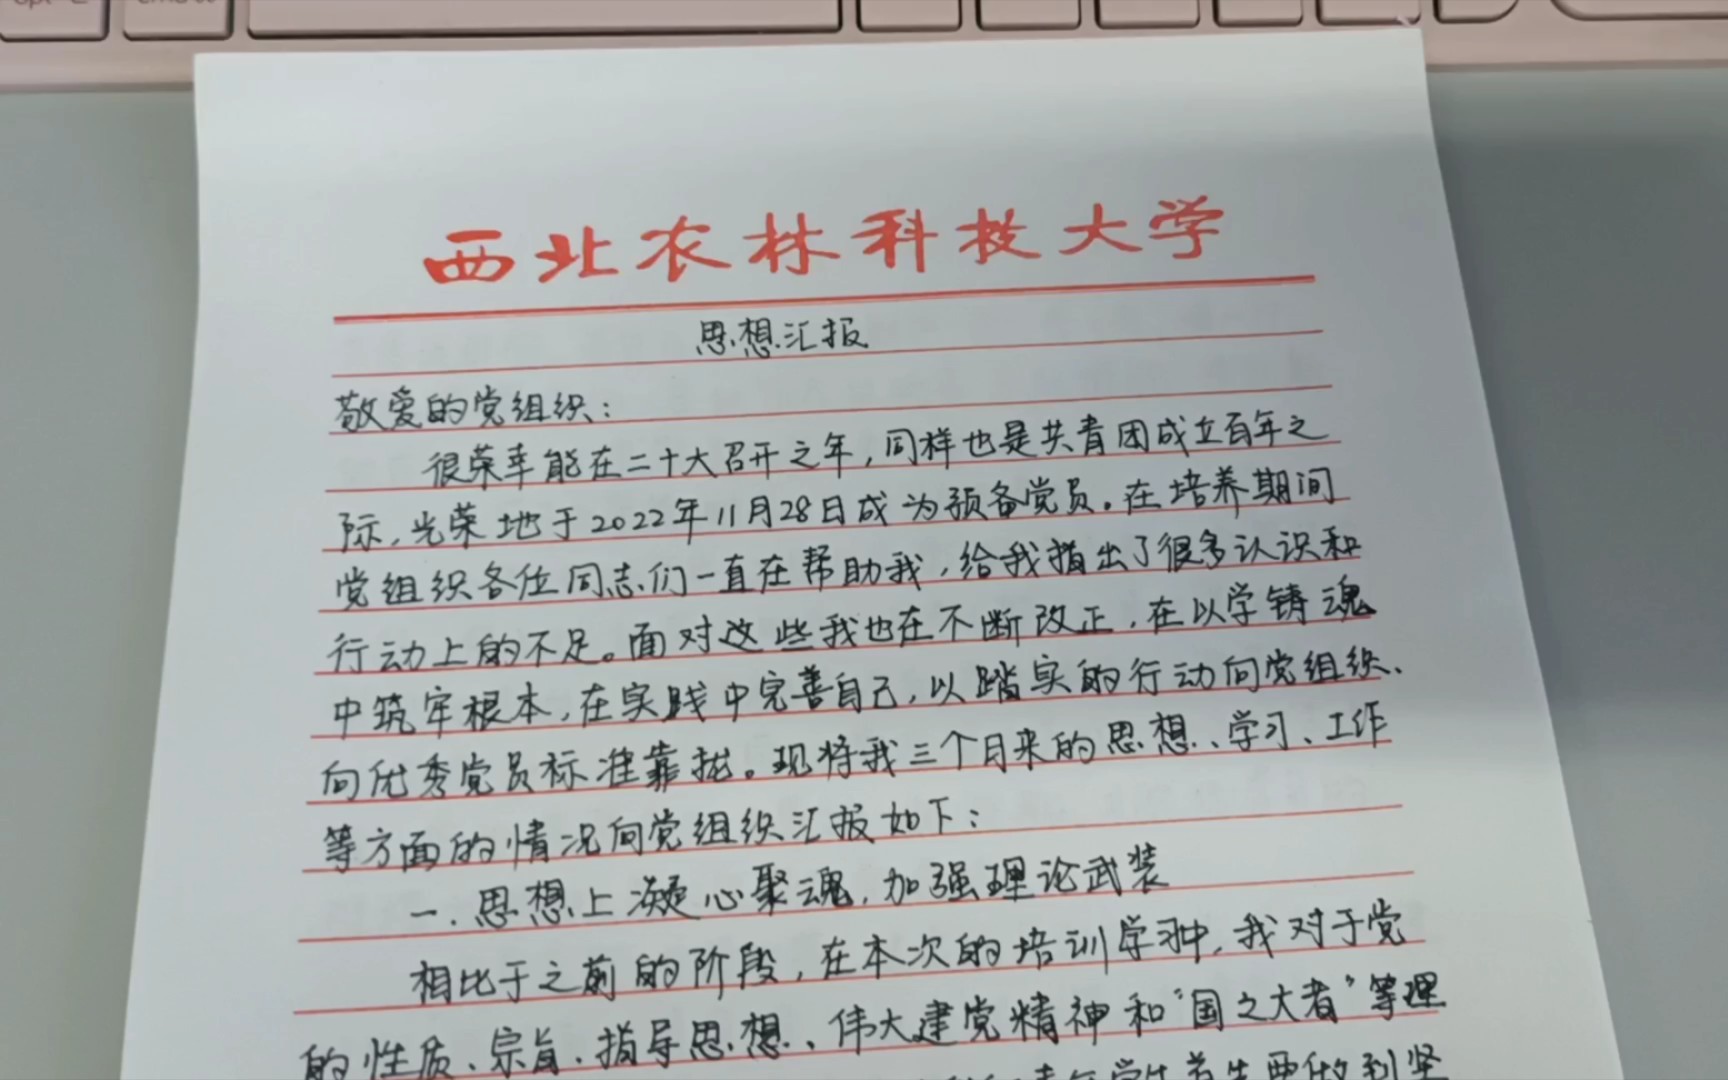 西北农林科技大学
思想汇报
敬爱的党组织：
很荣幸能在二十大召开之年，同样也是共青团成立百年之
际，光荣地于2022年11月28日成为预备党员。在培养期间
党组织各位同志们一直在帮助我，给我指出了很多认识和
行动上的不足。面对这些我也在不断改正，在以学铸魂
中筑牢根本，在实践中完善自己，以踏实的行动向党组织、
向优秀党员标准靠拢。现将我三个月来的思想、学习、工作
等方面的情况向党组织汇报如下：
一.思想上凝心聚魂，加强理论武装
相比于之前的阶段，在本次的培训学习中，我对于党
的性质、宗旨、指导思想、伟大建党精神和“国之大者”等理
青年学生首先要做到坚